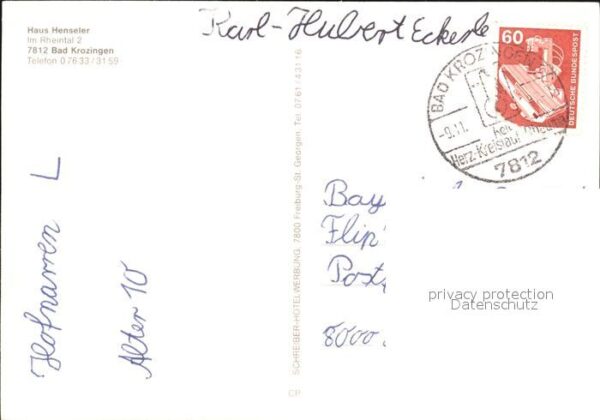 Haus Henseler
Im Rheintal 2
7812 Bad Krozingen
Telefon 0 76 33 / 31 59
Karl-Hubert Eckerle
60
DEUTSCHE BUNDESPOST
BAD KROZINGEN
-9.11.
Herz-Kreislauf
7812
SCHREIBER-HOTELWERBUNG, 7800 Freiburg-St. Georgen, Tel. 07 61 / 4 31 16
CP
Hofnarren L
Alter 10
Bay
Flip
Post
8000
privacy protection
Datenschutz